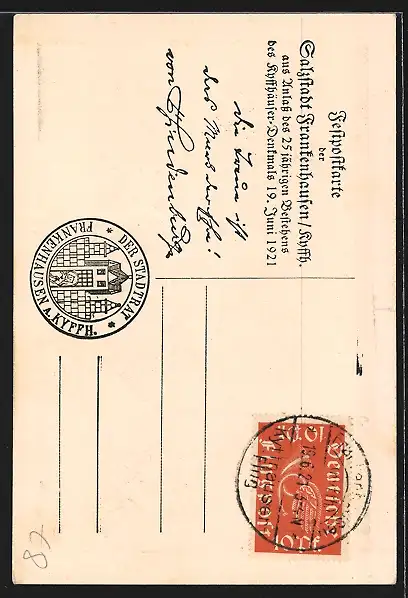 Festpostkarte
der
Salzstadt Frankenhausen/Kyffh.
aus Anlaß des 25jährigen Bestehens
des Kyffhäuser-Denkmals 19. Juni 1921
die Treue ist
das Mark der Ehre!
von Hindenburg
* DER STADTRAT *
FRANKENHAUSEN A. KYFFH.
10 10
Deutsche
Flugpost
19.6.21
Kyffhäuser
Flug